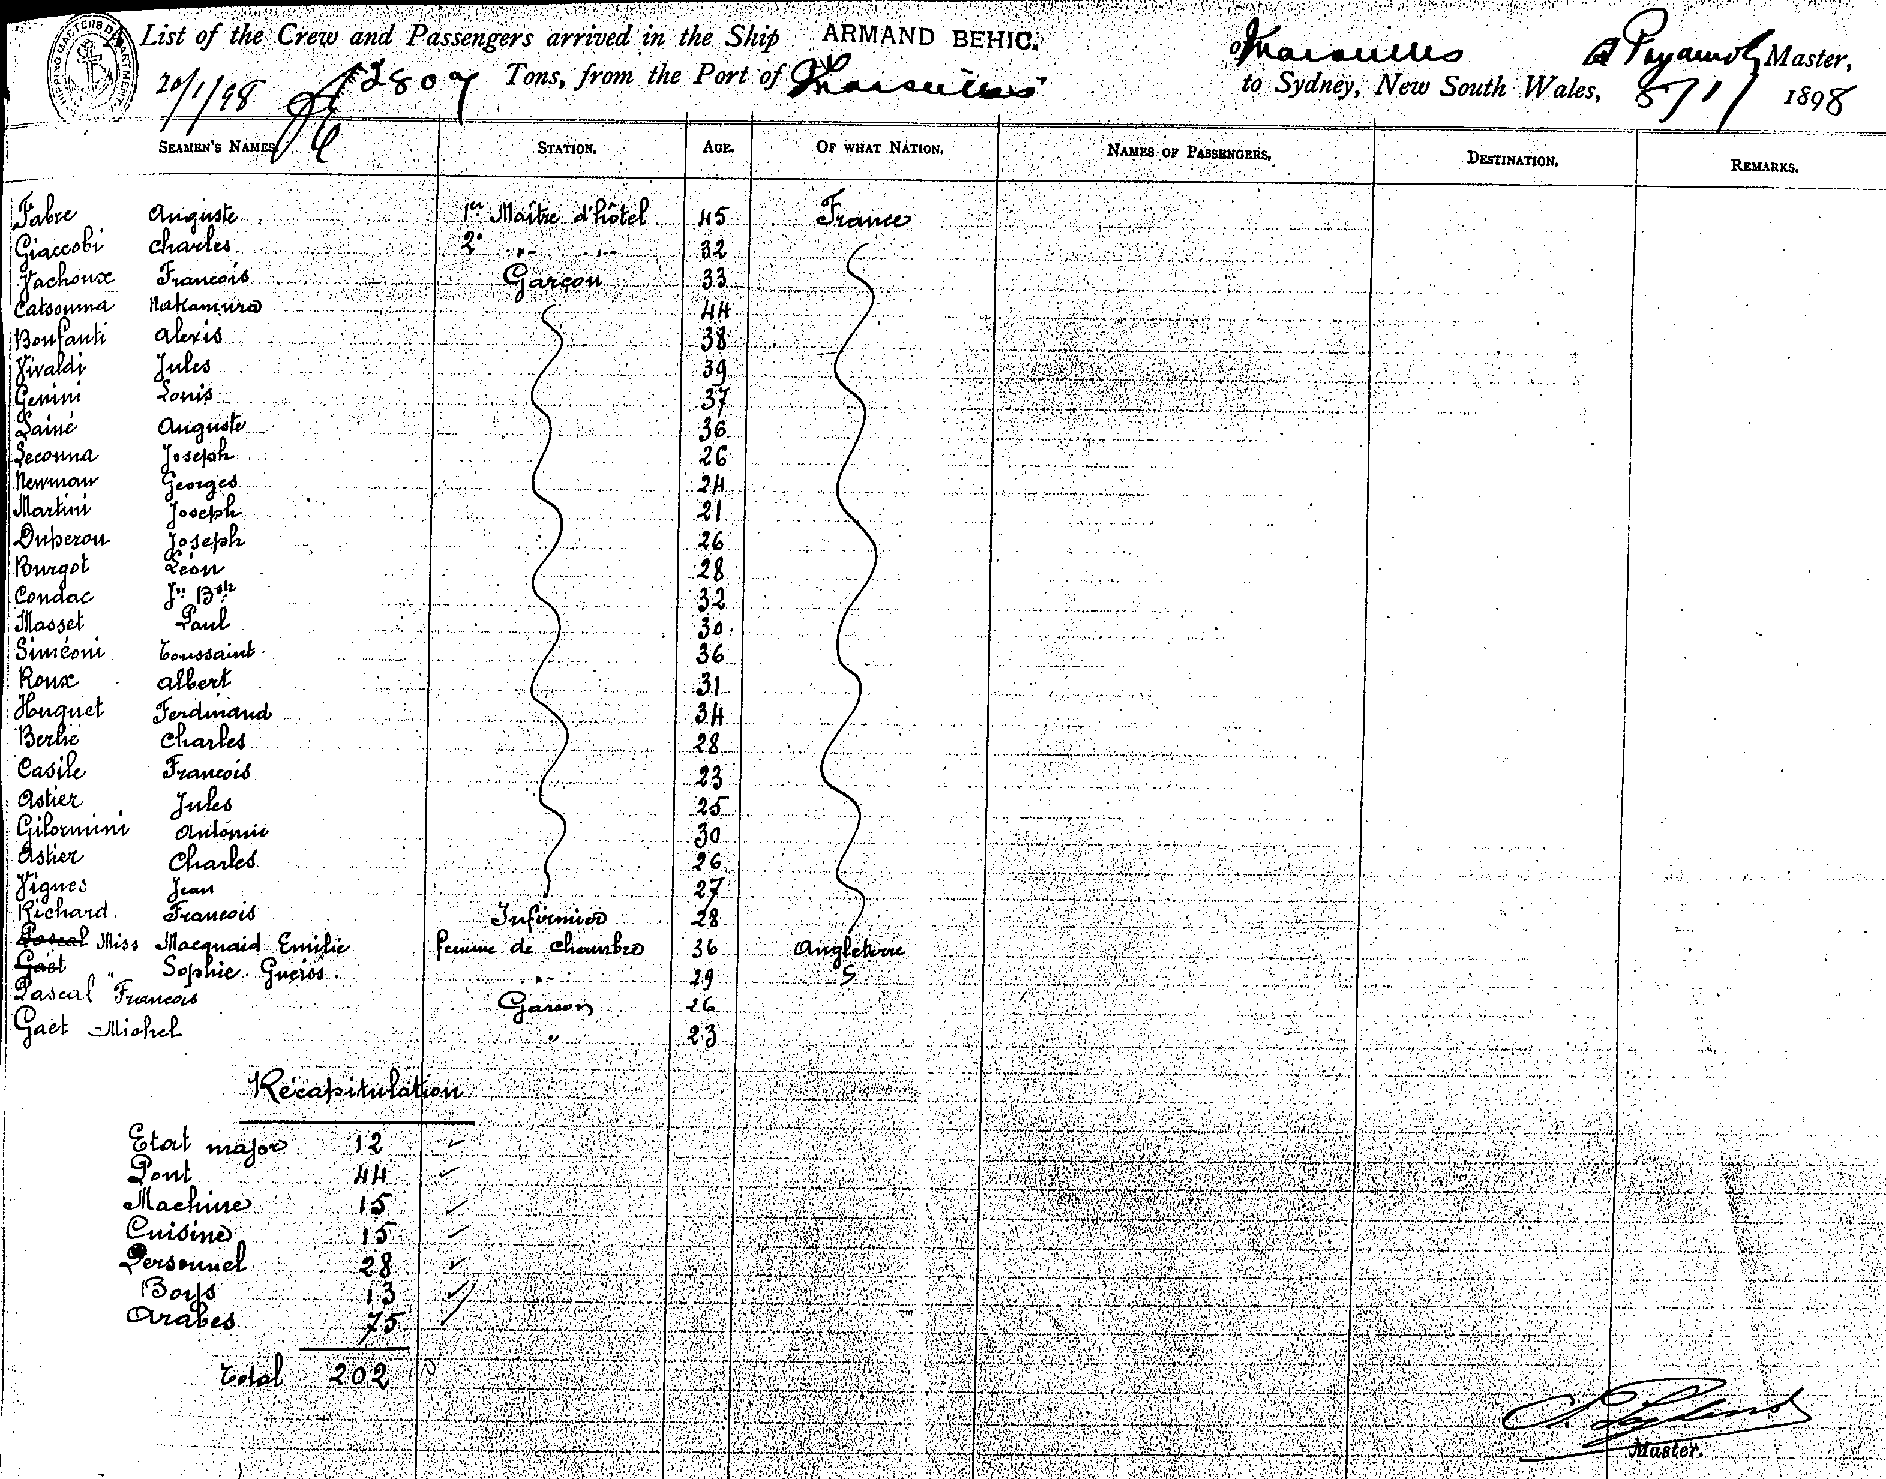 A List of the Crew and Passengers arrived in the Ship ARMAND BEHIC. of Marseilles Master,
20/1/98 2807 Tons, from the Port of Marseilles to Sydney, New South Wales, 1898
SEAMEN'S NAMES. STATION. AGE. OF WHAT NATION. NAMES OF PASSENGERS. DESTINATION. REMARKS.
Fabre Auguste 1er Maître d'hôtel 45 France
Giaccobi Charles 2e " " 32
Vachoux Francois Garçon 33
Catsouma Nakamura 44
Bonfanti Alexis 38
Vivaldi Jules 39
Gemini Louis 37
Lainé Auguste 36
Leconna Joseph 26
Newman Georges 24
Martini Joseph 21
Duperou Joseph 26
Burgot Léon 28
Condac Jn Bste 32
Masset Paul 30
Siméoni Toussaint 36
Roux Albert 31
Huguet Ferdinand 34
Berlie Charles 28
Casile Francois 23
Astier Jules 25
Gilormini Antonin 30
Astier Charles 26
Vignes Jean 27
Richard Francois Infirmier 28
Pascal Miss Macquaid Emilie femme de chambre 36 Angleterre
Gaët " Sophie Gueiss " 29
Pascal Francois Garcon 26
Gaët Michel " 23
Récapitulation
Etat major 12
Pont 44
Machine 15
Cuisine 15
Personnel 28
Boys 13
Arabes 75
Total 202
Master.